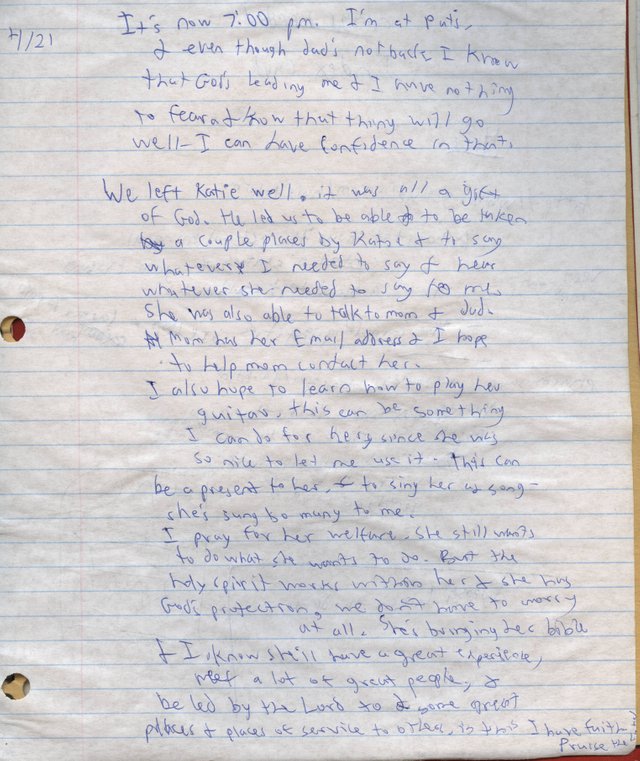 7/21
It's now 7:00 pm. I'm at Pat's,
& even though dad's not back, I know
that God's leading me & I have nothing
to fear & know that thing will go
well - I can have confidence in that.
We left Katie well, it was all a gift
of God. He led us to be able to be taken
a couple places by Katie & to say
whatever I needed to say & hear
whatever she needed to say to me.
She was also able to talk to mom & dad.
Mom has her Email address & I hope
to help mom contact her.
I also hope to learn how to play her
guitar, this can be something
I can do for her, since she was
so nice to let me use it. This can
be a present to her, & to sing her a song -
she's sung so many to me.
I pray for her welfare. She still wants
to do what she wants to do. But the
holy spirit works within her & she has
God's protection, we don't have to worry
at all. She's bringing her bible
& I know she'll have a great experience,
meet a lot of great people, &
be led by the Lord to some great
places & places of service to others, in this I have faith
Praise the